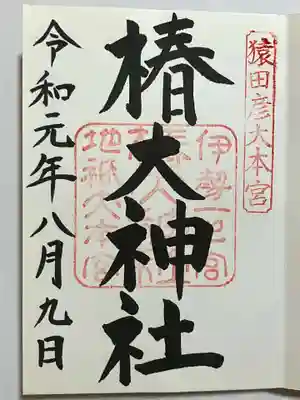 猿田彦大本宮
椿大神社
伊勢一之宮
地祇大本宮
令和元年八月九日